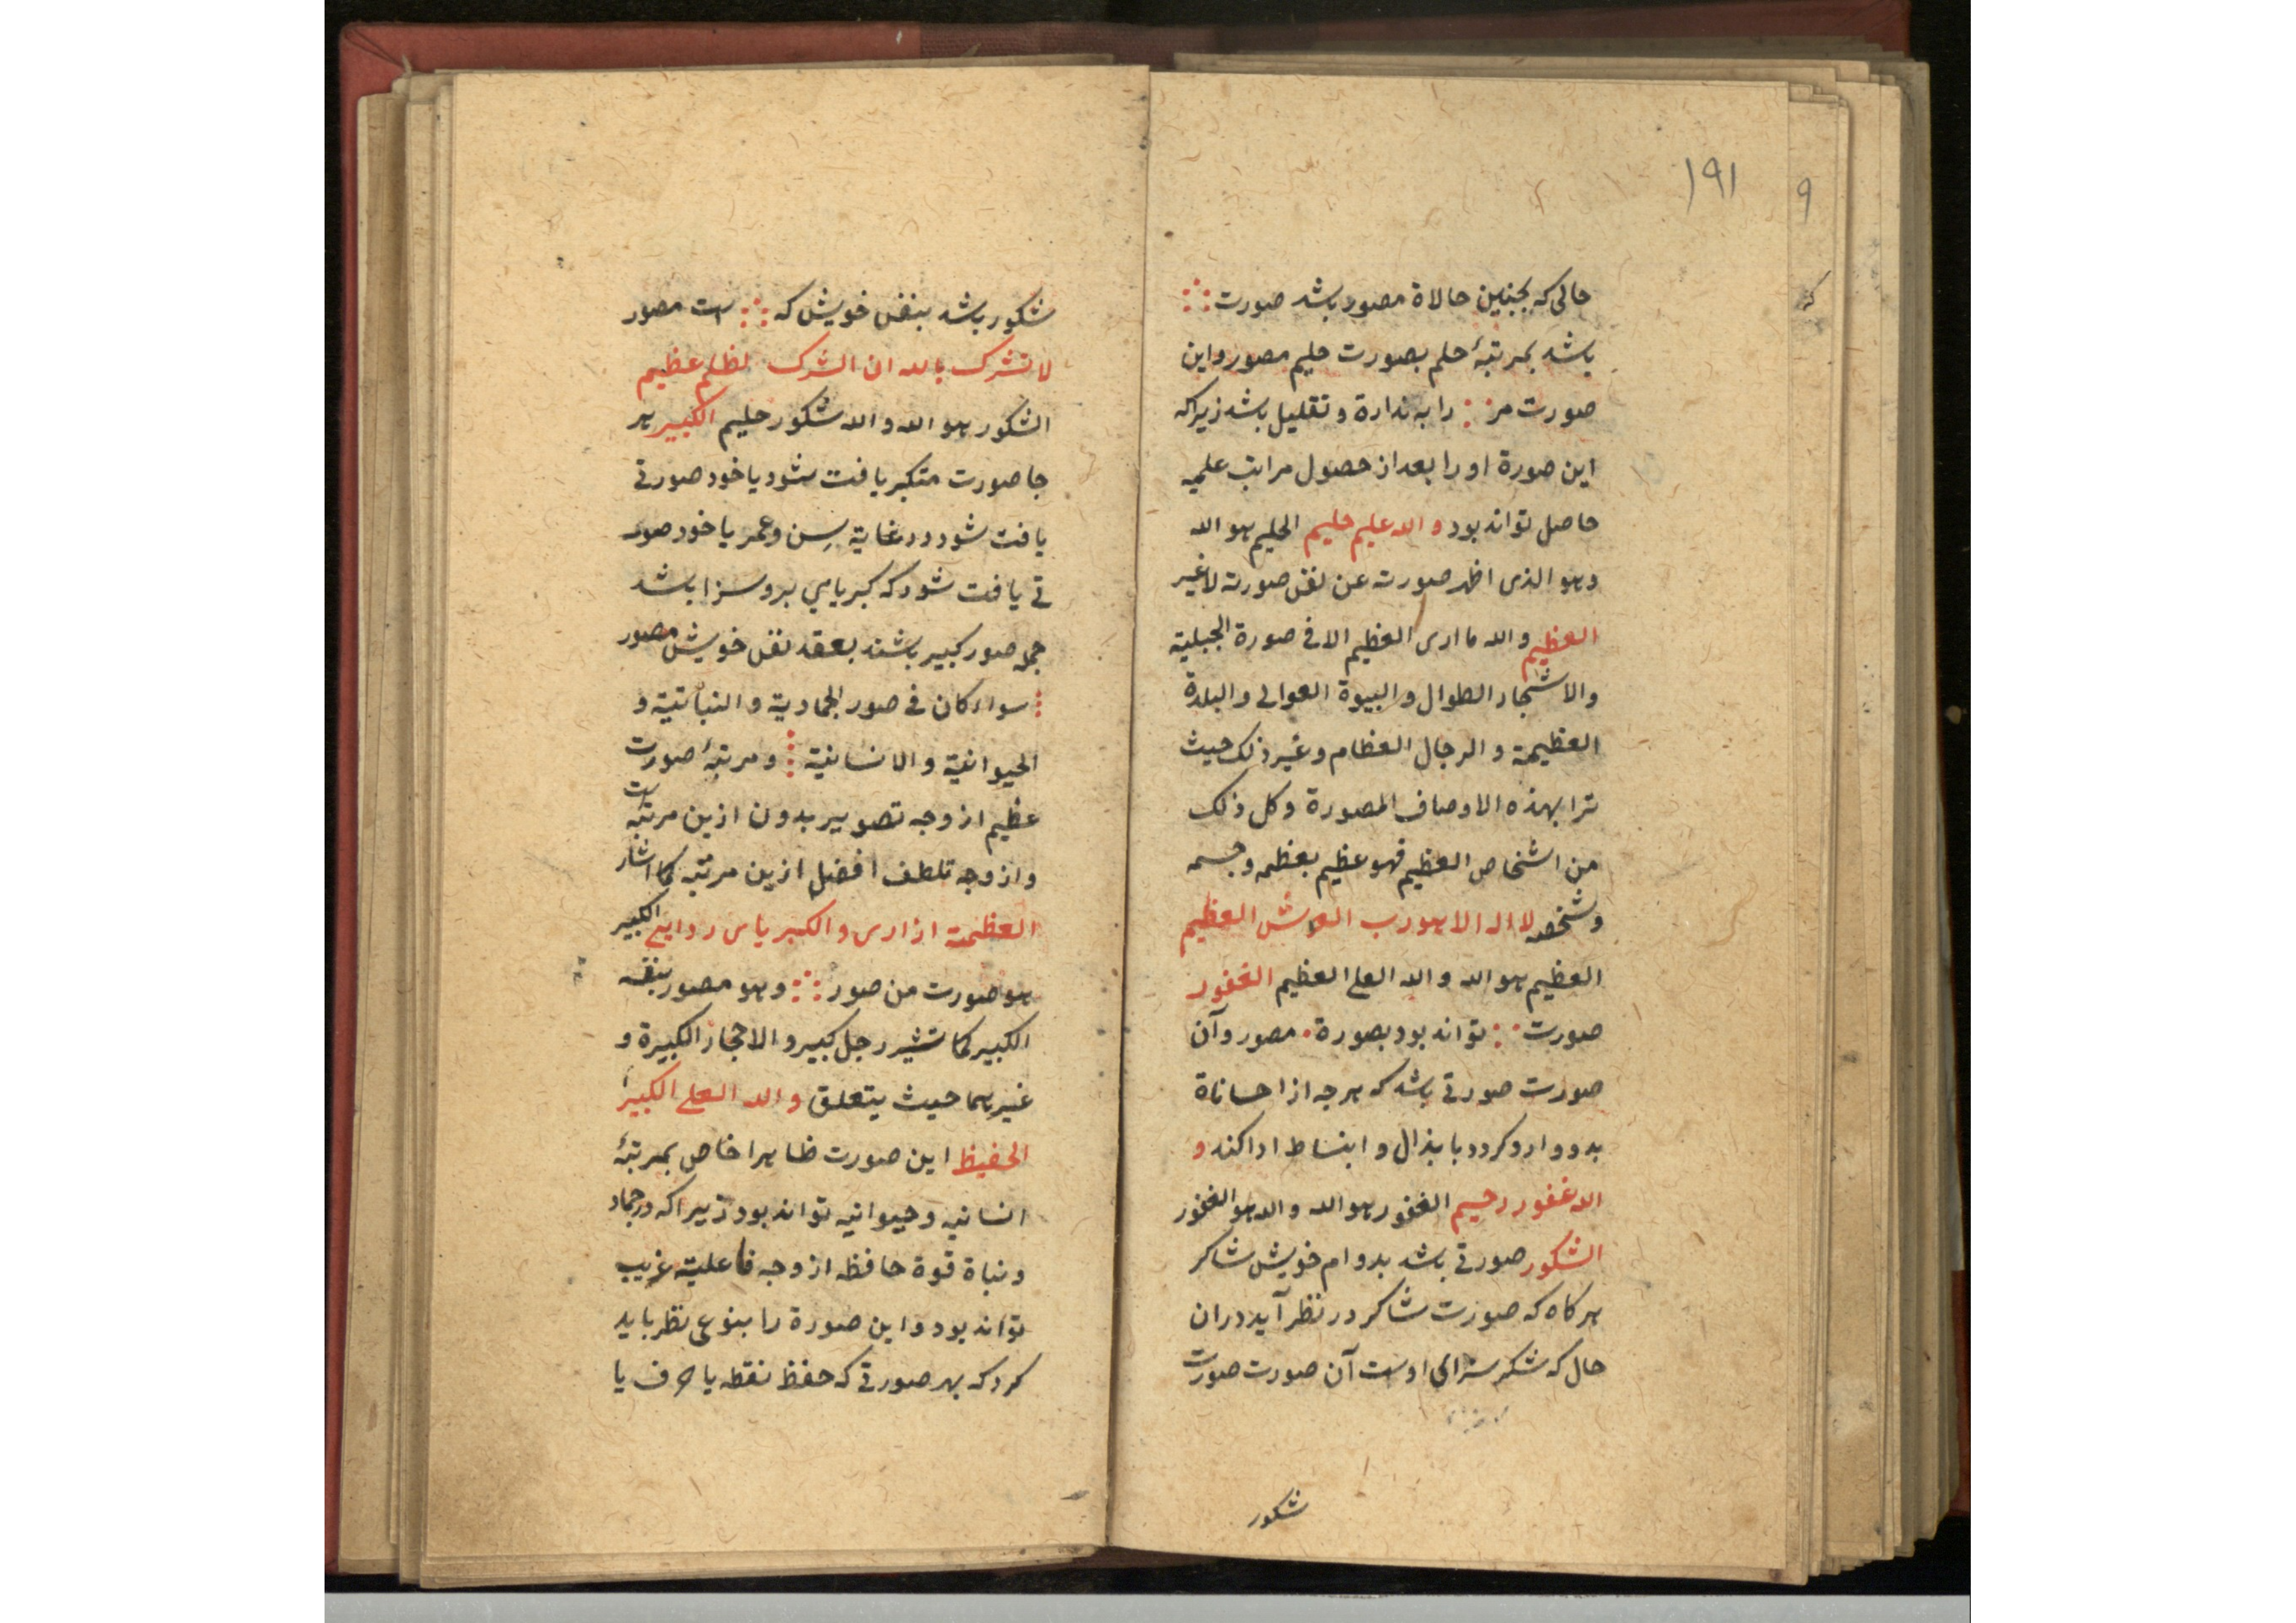 ۱۹۱
۹
حالی که بجنین حالاة مصور باشد صورت ⁘
باشد بمرتبهٔ حلم بصورت حلیم مصور و این
صورت مر ⁘ را به ندارة و تقلیل باشد زیراکه
این صورة او را بعد از حصول مراتب علمیه
حاصل تواند بود و الله علیم حلیم الحلیم هو الله
و هو الذی اظهر صورته عن نفس صورته لا غیر
العظیم و الله ما اری العظیم الا فی صورة الجبلیة
و الاشجار الطوال و البیوة العوالی و البلدة
العظیمة و الرجال العظام و غیر ذلک حیث
ترا بهذه الاوصاف المصورة و کل ذلک
من اشخاص العظیم فهو عظیم بعظمه و جسمه
و شخصه لا اله الا هو رب العرش العظیم
العظیم هو الله و الله العلی العظیم الغفور
صورت ⁘ تواند بود بصورة ۰ مصور و آن
صورت صورتی باشد که هرجه از احساناة
بدو وارد کردد با بذال و ابنساط ادا کند و
الله غفور رحیم الغفور هو الله و الله هو الغفور
الشکور صورتی باشد بدوام خویش شاکر
هرکاه که صورت شاکر در نظر آید در ان
حال که شکر سزای اوست آن صورت صورت
شکور
شکور باشد بنفس خویش که ⁘ ست مصور
لا تشرک بالله ان الشرک لظلم عظیم
الشکور هو الله و الله شکور حلیم الکبیر هر
جا صورت متکبر یافت شود یا خود صورتی
یافت شود در غایة سِن و عمر یا خود صور
تی یافت شود که کبریایی برو سزا باشد
جمله صور کبیر باشند بعقد نفس خویش مصور
⁝ سواء کان فی صور الجمادیة و النباتیة و
الحیوانیة و الانسانیة ⁝ و مرتبهٔ صورت
عظیم از وجه تصویر بدون ازین مرتبه ست
و از وجه تلطف افضل ازین مرتبه کما اشار
العظمة ازاری و الکبریاء ردایی الکبیر
هو صورت من صور ⁘ و هو مصور بنفسه
الکبیر کما تشیر رجل کبیر و الاحجار الکبیرة و
غیرهما حیث یتعلق و الله العلی الکبیر
الحفیظ این صورت ظاهرا خاص بمرتبهٔ
انسانیه و حیوانیه تواند بود زیراکه در جماد
و نباة قوة حافظه از وجه فاعلیة غریب
تواند بود و این صورة را بنوعی نظر باید
کرد که بهر صورتی که حفظ نقطه یا حرف یا